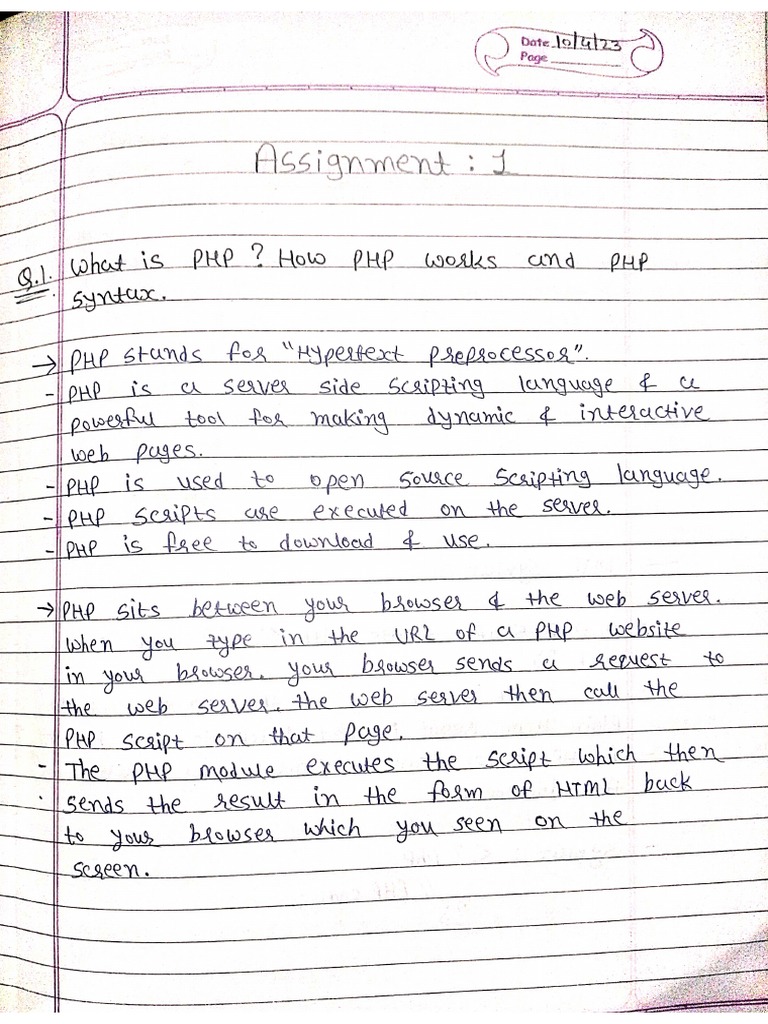 Date 10/4/23
Page
Assignment : 1
Q.1. What is PHP ? How PHP works and PHP
syntax.
→ PHP stands for "Hypertext preprocessor".
- PHP is a server side scripting language & a
powerful tool for making dynamic & interactive
web pages.
- PHP is used to open source scripting language.
- PHP scripts are executed on the server.
- PHP is free to download & use.
→ PHP sits between your browser & the web server.
when you type in the URL of a PHP website
in your browser. your browser sends a request to
the web server. the web server then call the
PHP script on that page.
- The PHP module executes the script which then
sends the result in the form of HTML back
to your browser which you seen on the
screen.